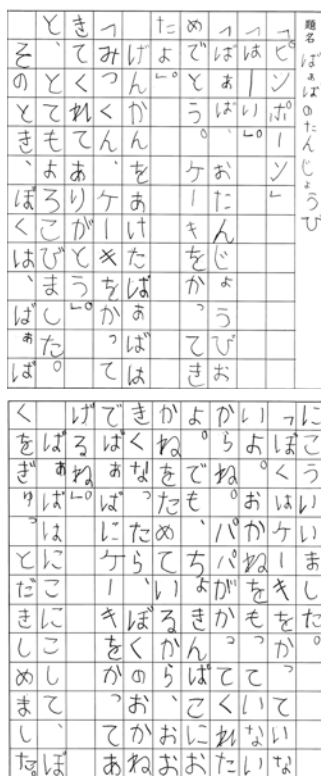 題名 ばぁばのたんじょうび
「ピンポーン」
「はーい」。
「ばぁば、おたんじょうびお
めでとう。ケーキをかってき
たよ」。
げんかんをあけたばぁばは
「みっくん、ケーキをかって
きてくれてありがとう」。
と、とてもよろこびました。
そのとき、ぼくは、ばぁば
にこういいました。
「ぼくはケーキをかっていな
いよ。おかねをもっていない
からね。パパがかってくれた
よ。でも、ちょきんばこにお
かねをためているから、おお
きくなったら、ぼくのおかね
でばぁばにケーキをかってあ
げるね」。
ばぁばはにこにこして、ぼ
くをぎゅっとだきしめました。